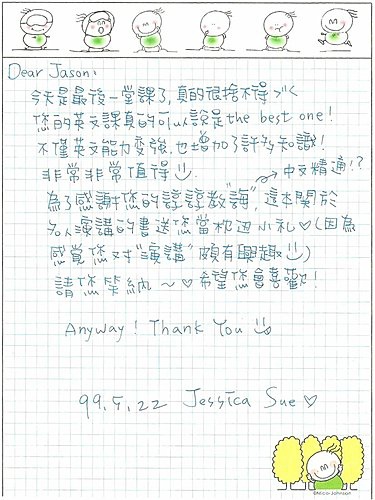 Dear Jason:
今天是最後一堂課了,真的很捨不得ㄋㄟ
您的英文課真的可以說是the best one!
不僅英文能力變強,也增加了許多知識!
非常非常值得 → 中文精通!?
為了感謝您的諄諄"教誨",這本關於
名人演講的書送您當枕边小礼♡(因為
感覺您对"演講"頗有興趣)
請您笑納~♡希望您會喜歡!
Anyway! Thank You
99.5.22 Jessica Sue ♡
©Mico Johnson